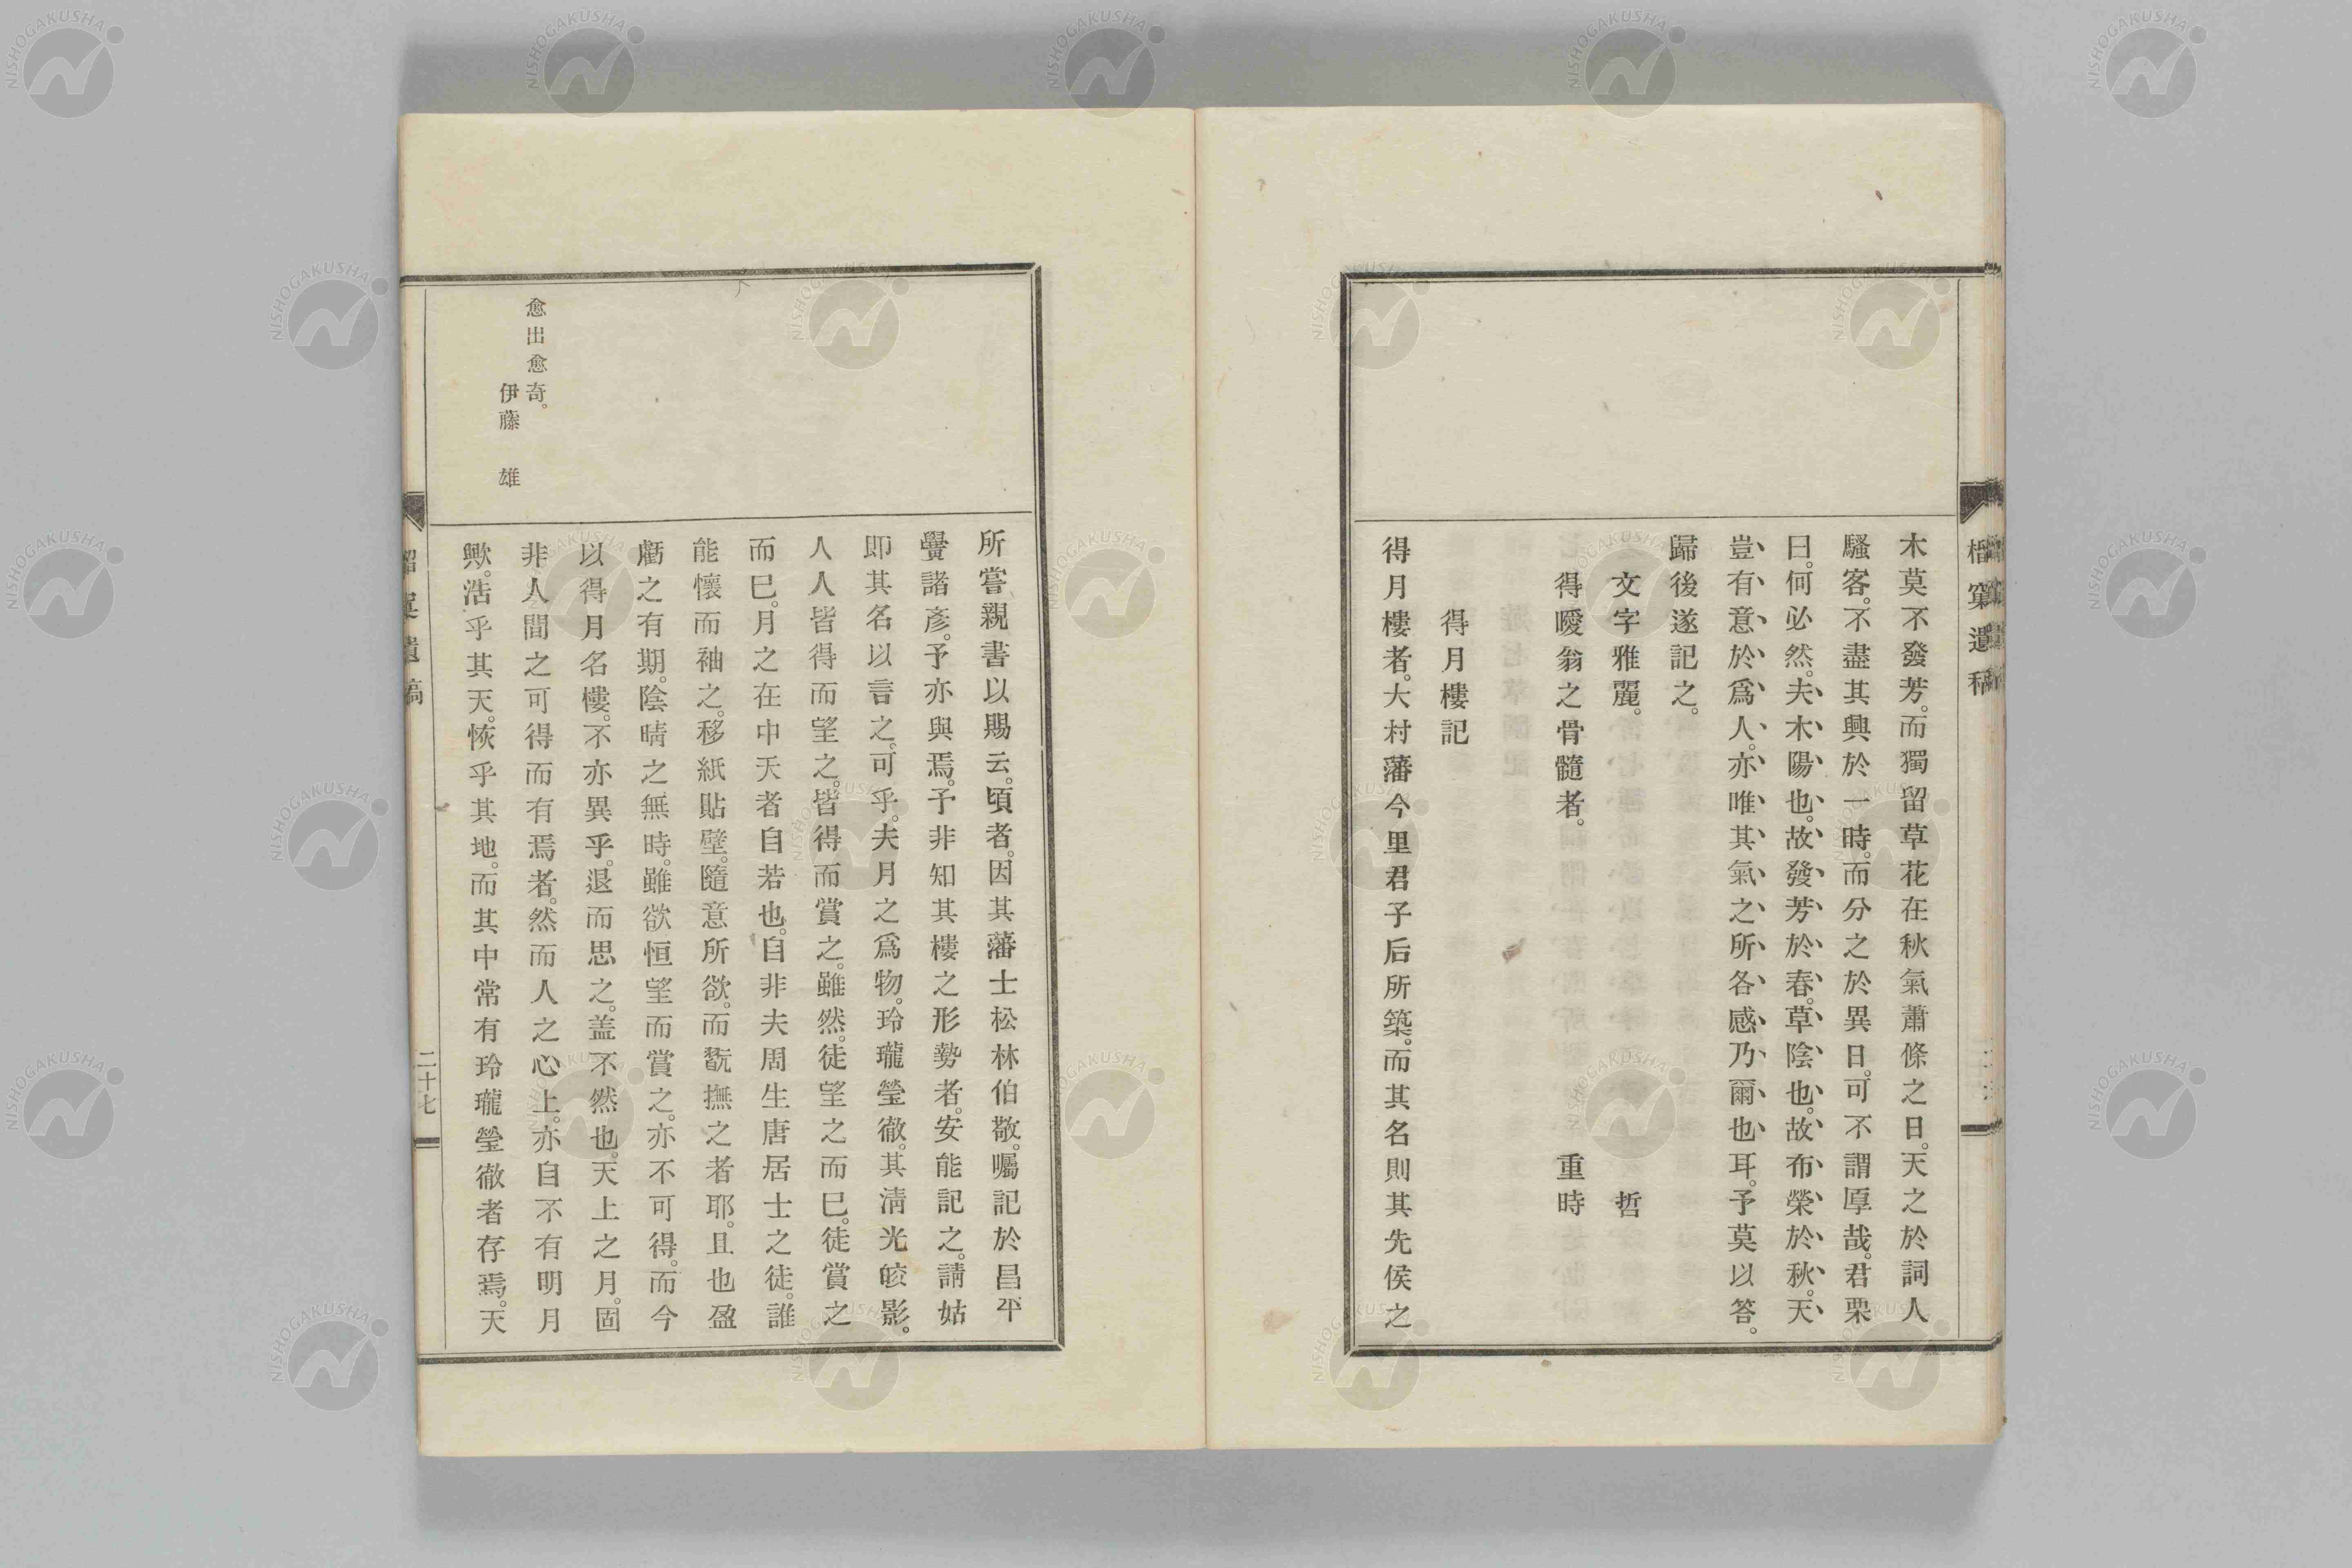 木莫不發芳。而獨留草花在秋氣蕭條之日。天之於詞人
騷客。不盡其興於一時。而分之於異日。可不謂厚哉。君栗
曰。何必然。夫木陽也。故發芳於春。草陰也。故布榮於秋。天
豈有意於爲人。亦唯其氣之所各感乃爾也耳。予莫以答。
歸後遂記之。
文字雅麗。 哲
得曖翁之骨髓者。 重時
得月樓記
得月樓者。大村藩今里君子后所築。而其名則其先侯之
所嘗親書以賜云。頃者。因其藩士松林伯敬。囑記於昌平
黌諸彥。予亦與焉。予非知其樓之形勢者。安能記之。請姑
即其名以言之。可乎。夫月之爲物。玲瓏瑩徹。其淸光皎影。
人人皆得而望之。皆得而賞之。雖然。徒望之而巳。徒賞之
而巳。月之在中天者自若也。自非夫周生唐居士之徒。誰
能懷而袖之。移紙貼壁。隨意所欲。而翫撫之者耶。且也盈
虧之有期。陰晴之無時。雖欲恒望而賞之。亦不可得。而今
以得月名樓。不亦異乎。退而思之。蓋不然也。天上之月。固
非人間之可得而有焉者。然而人之心上。亦自不有明月
歟。浩乎其天。恢乎其地。而其中常有玲瓏瑩徹者存焉。天
愈出愈奇。
伊藤 雄
二十七
NISHOGAKUSHA